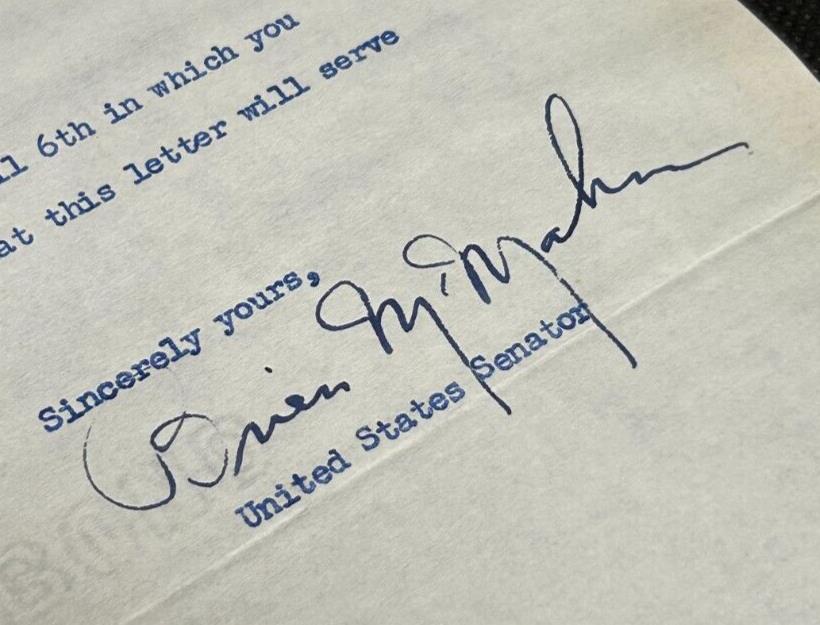 6th in which you
at this letter will serve
Sincerely yours,
Brien McMahon
United States Senator